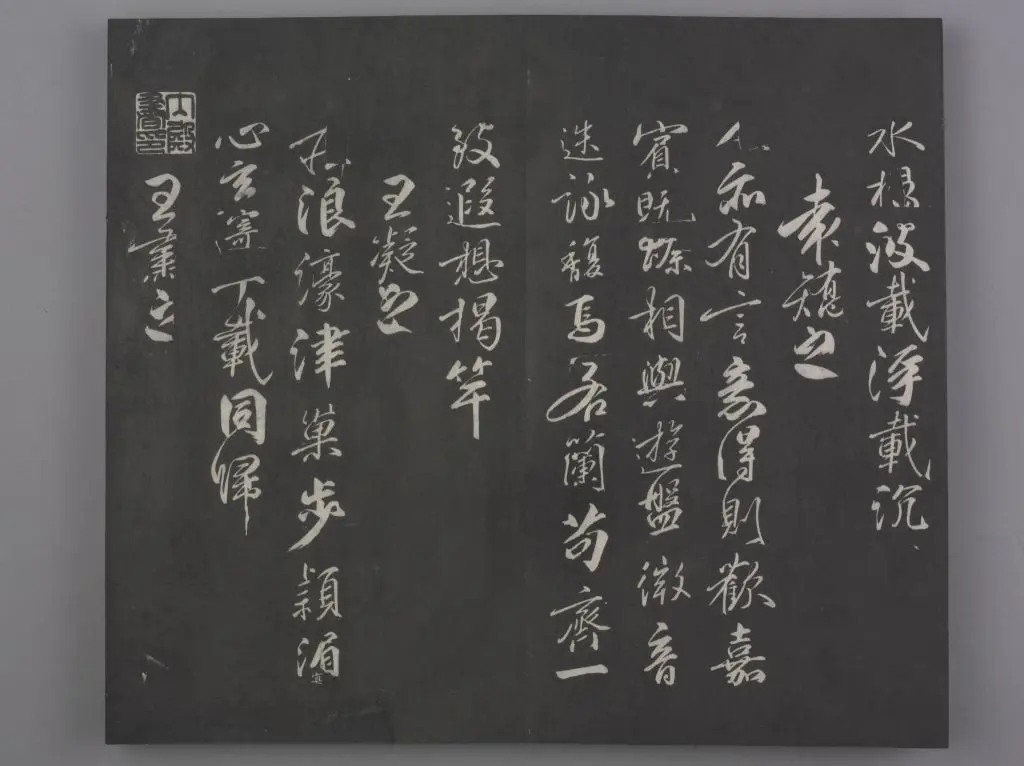 水揚波載浮載沉
袁嶠之
人亦有言意得則歡嘉
賓既臻相與遊盤微音
迭詠馥焉若蘭苟齊一
致遐想揭竿
王凝之
莊浪濠津巢步潁湄冥
心玄寄千載同歸
王肅之
內殿書印